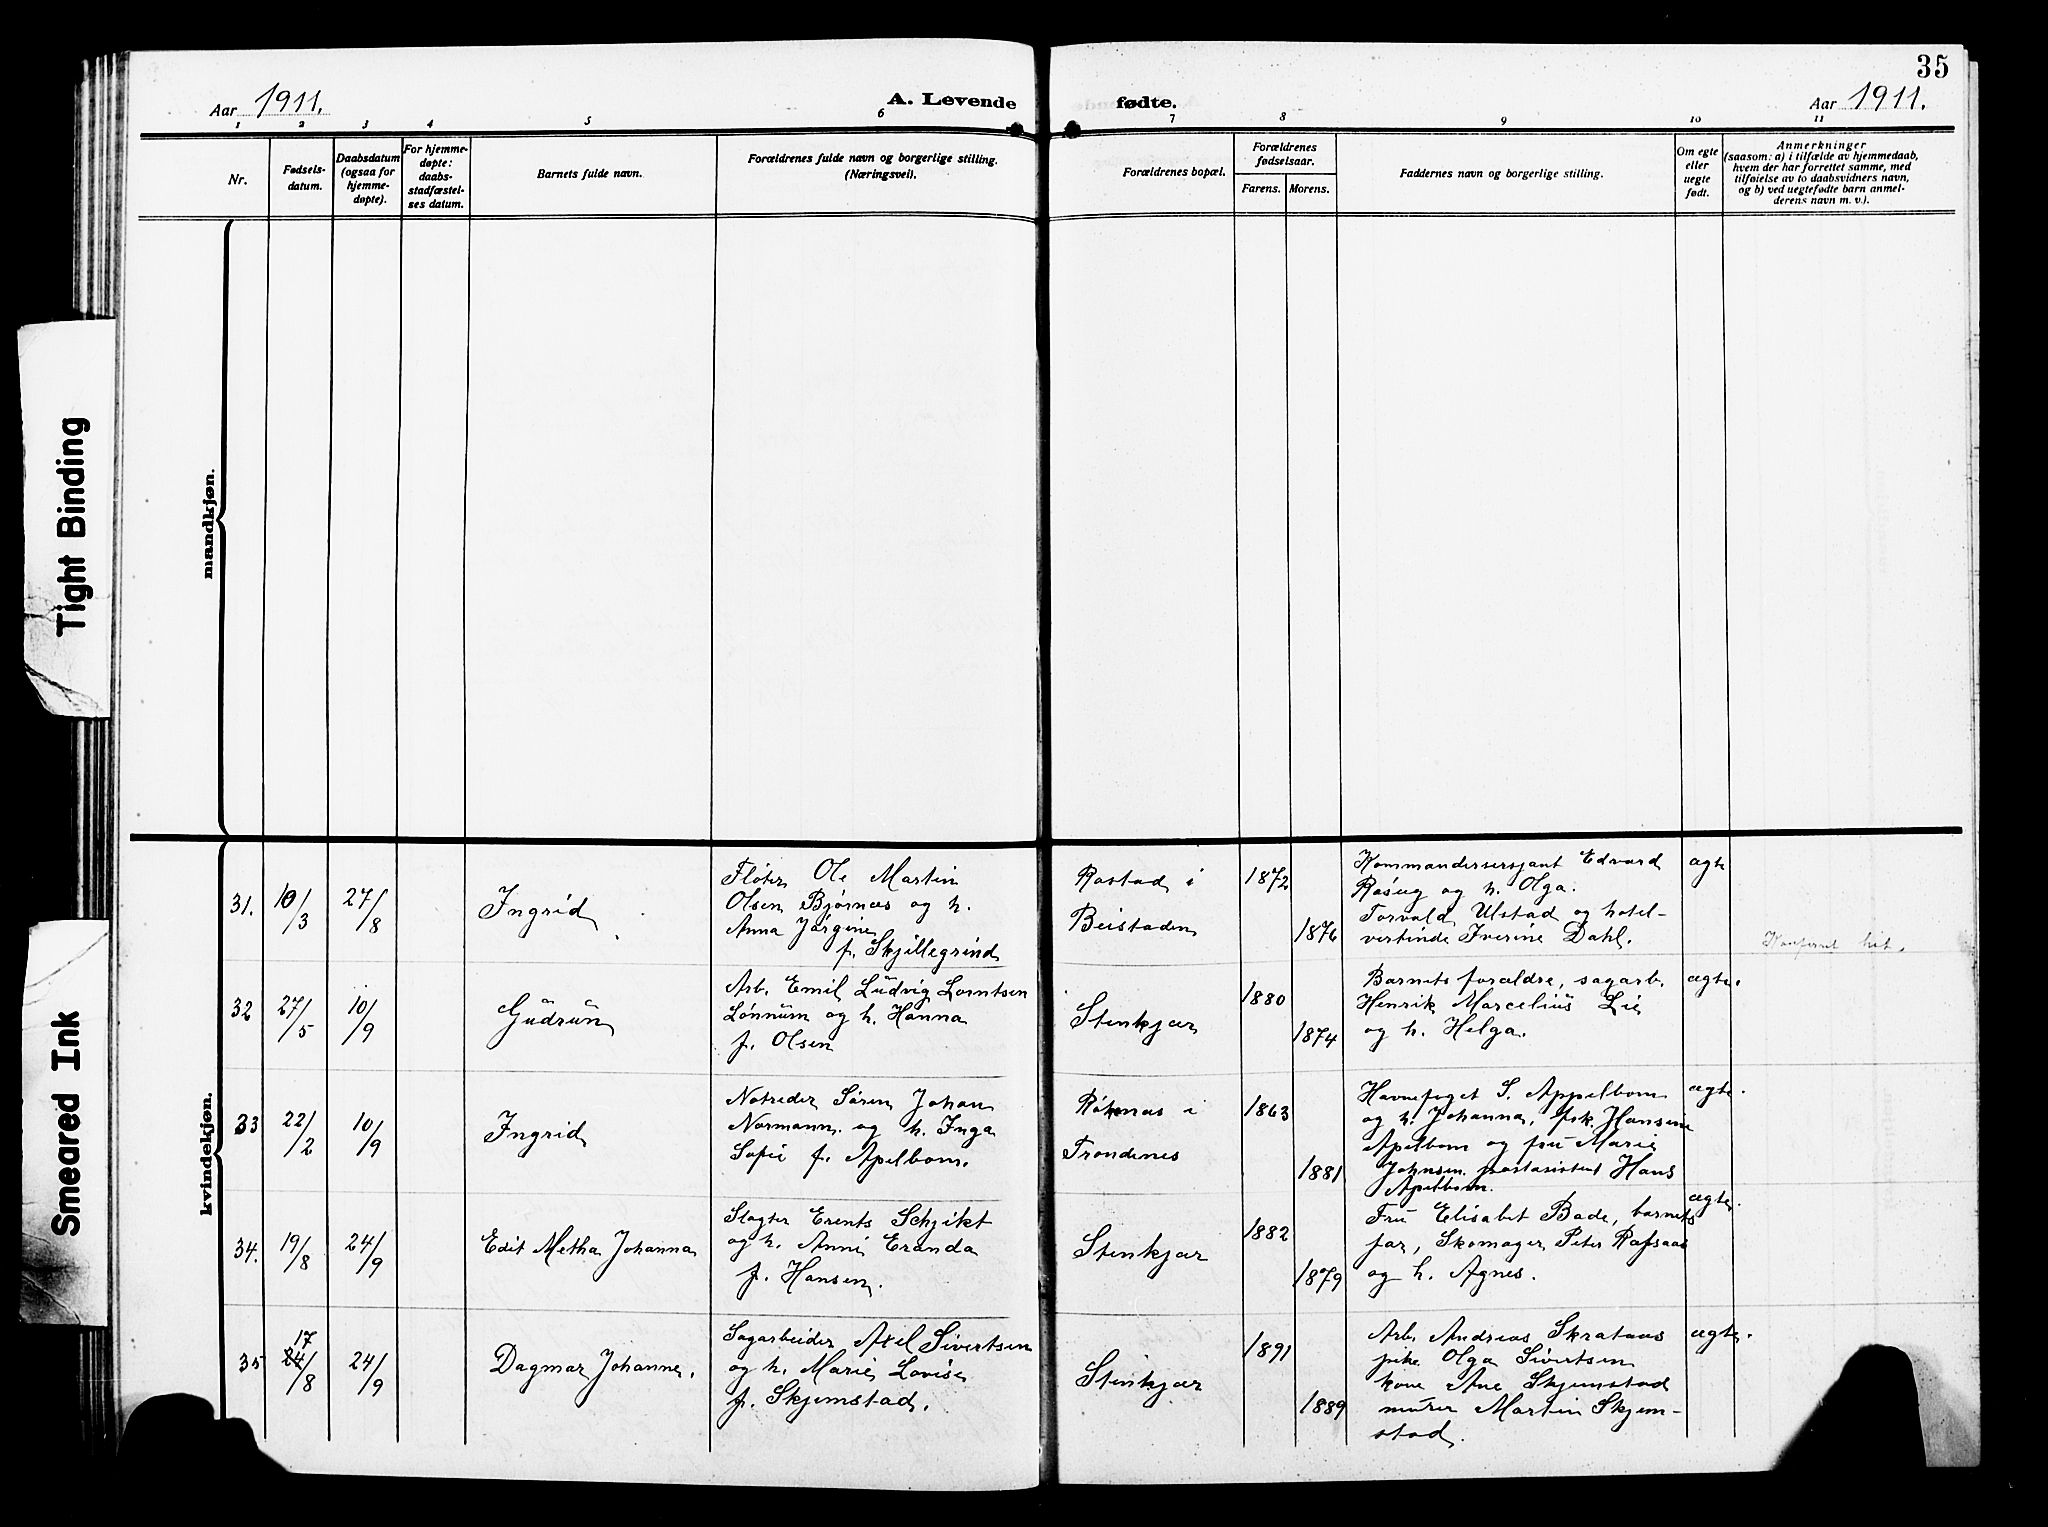 Tight Binding
Smeared Ink
35
Aar 1911.
A. Levende
fødte.
Aar 1911.
1 2 3 4 5 6 7 8 9 10 11
Nr.
Fødsels-
datum.
Daabsdatum
(ogsaa for
hjemme-
døpte).
For hjemme-
døpte:
daabs-
stadfæstel-
ses datum.
Barnets fulde navn.
Forældrenes fulde navn og borgerlige stilling.
(Næringsvei).
Forældrenes bopæl.
Forældrenes
fødselsaar.
Farens. Morens.
Faddernes navn og borgerlige stilling.
Om egte
eller
uegte
født.
Anmerkninger
(saasom: a) i tilfælde av hjemmedaab,
hvem der har forrettet samme, med
tilføielse av to daabsvidners navn,
og b) ved uegtefødte barn anmel-
derens navn m. v.).
mandkjøn.
kvindekjøn.
31. 10/3 27/8
Ingrid
Fløter Ole Martin
Olsen Bjørnæs og h.
Anna Jørgine
f. Skjillegrind
Rostad i
Beistaden
1872
1876
Kommandersersjant Edvard
Røseg og h. Olga.
Torvald Ulstad og hotel-
vertinde Iverine Dahl.
ægte
hit.
32 27/5 10/9
Gudrun
Arb. Emil Ludvig Lorntsen
Lønnum og h. Hanna
f. Olsen
Stenkjær
1880
1874
Barnets forældre, sagarb.
Henrik Marcelius Lie
og h. Helga.
ægte.
33 22/2 10/9
Ingrid
Notreder Søren Johan
Normann og h. Inga
Sofie f. Apelbom.
i
Trondenes
1863
1881
Havnefoget S. Appelbom
og h. Johanna, frk. Hansine
Apelbom og fru Marie
Johnsen. postasistent Hans
Apelbom.
ægte.
34. 19/8 24/9
Edit Metha Johanna
Slagter Erents Schjikt
og h. Anne Eranda
f. Hansen.
Stenkjær
1882
1879
Fru Elisabet Bade, barnets
far, Skomager Peter Rafsaas
og h. Agnes.
ægte.
35 17/8 24/9
Dagmar Johanne.
Sagarbeider Axel Sivertsen
og h. Marie Lovise
f. Skjemstad.
Stenkjær
1891
1889
Arb. Andreas Skrataas
pike Olga Sivertsen
kone Ane Skjemstad
murer Martin Skjem-
stad.
ægte.